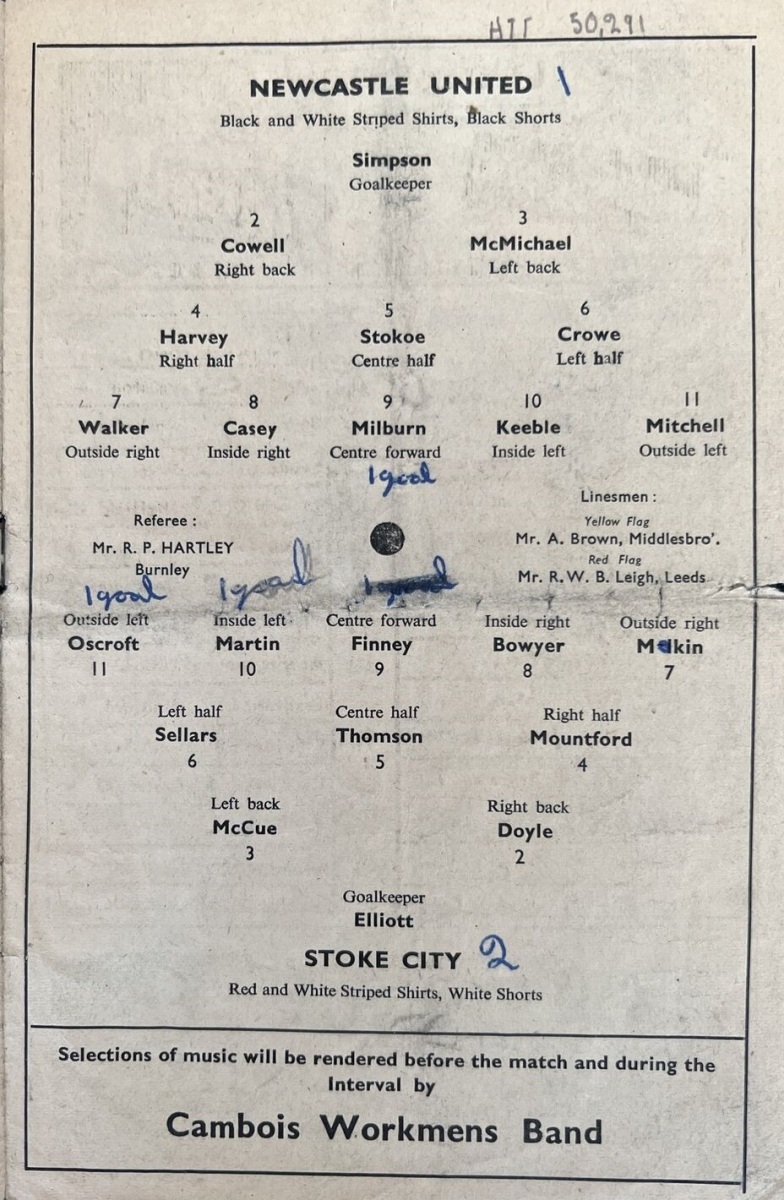 ATT 50,291
NEWCASTLE UNITED 1
Black and White Striped Shirts, Black Shorts
Simpson
Goalkeeper
2 3
Cowell McMichael
Right back Left back
4 5 6
Harvey Stokoe Crowe
Right half Centre half Left half
7 8 9 10 11
Walker Casey Milburn Keeble Mitchell
Outside right Inside right Centre forward Inside left Outside left
1 goal
Linesmen :
Referee : Yellow Flag
Mr. R. P. HARTLEY Mr. A. Brown, Middlesbro'.
Burnley Red Flag
Mr. R. W. B. Leigh, Leeds
1 goal 1 goal 1 goal
Outside left Inside left Centre forward Inside right Outside right
Oscroft Martin Finney Bowyer Malkin
11 10 9 8 7
Left half Centre half Right half
Sellars Thomson Mountford
6 5 4
Left back Right back
McCue Doyle
3 2
Goalkeeper
Elliott
STOKE CITY 2
Red and White Striped Shirts, White Shorts
Selections of music will be rendered before the match and during the
Interval by
Cambois Workmens Band